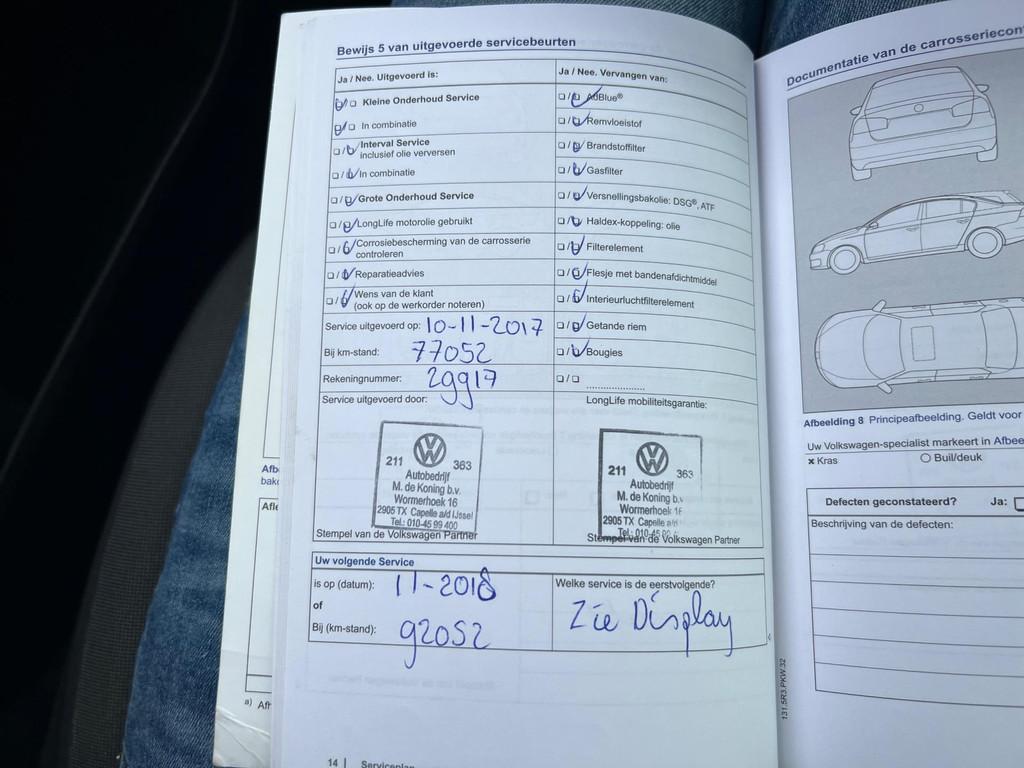 Bewijs 5 van uitgevoerde servicebeurten
Ja / Nee. Uitgevoerd is:
Kleine Onderhoud Service
In combinatie
Interval Service
inclusief olie verversen
In combinatie
Grote Onderhoud Service
LongLife motorolie gebruikt
Corrosiebescherming van de carrosserie
controleren
Reparatieadvies
Wens van de klant
(ook op de werkorder noteren)
Service uitgevoerd op: 10-11-2017
Bij km-stand: 77052
Rekeningnummer: 29917
Service uitgevoerd door:
211 363
Autobedrijf
M. de Koning b.v.
Wormerhoek 16
2905 TX Capelle a/d IJssel
Tel.: 010-45 99 400
Stempel van de Volkswagen Partner
Ja / Nee. Vervangen van:
AdBlue®
Remvloeistof
Brandstoffilter
Gasfilter
Versnellingsbakolie: DSG®, ATF
Haldex-koppeling: olie
Filterelement
Flesje met bandenafdichtmiddel
Interieurluchtfilterelement
Getande riem
Bougies
LongLife mobiliteitsgarantie:
211 363
Autobedrijf
M. de Koning b.v.
Wormerhoek 16
2905 TX Capelle a/d
Tel.: 010-45
Stempel van de Volkswagen Partner
Uw volgende Service
is op (datum): 11-2018
of
Bij (km-stand): 92052
Welke service is de eerstvolgende?
Zie Display
14 | Serviceplan
Afb
bak
Afle
a) Afh
Documentatie van de carrosseriecon
Afbeelding 8 Principeafbeelding. Geldt voor
Uw Volkswagen-specialist markeert in Afbee
x Kras
Buil/deuk
Defecten geconstateerd? Ja:
Beschrijving van de defecten:
131.5R3.PKW.32